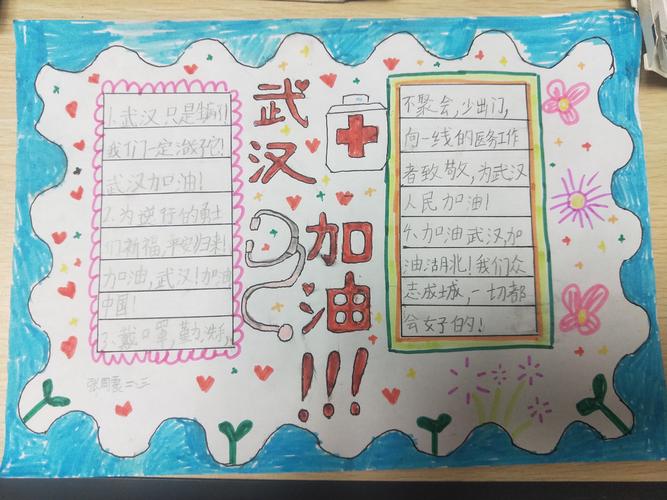 武汉
加油
!!!
1.武汉只是
我们一定治好它!
武汉加油!
2.为逆行的勇士
们祈福,平安归来!
加油,武汉!加油
中国!
3.戴口罩,勤洗手,
不聚会,少出门,
向一线的医务工作
者致敬,为武汉
人民加油!
4.加油武汉,加
油湖北!我们众
志成城,一切都
会好的!